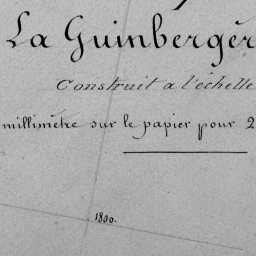 La Guinbergèr
Construit a l'échelle
millimètre sur le papier pour 2
1890.